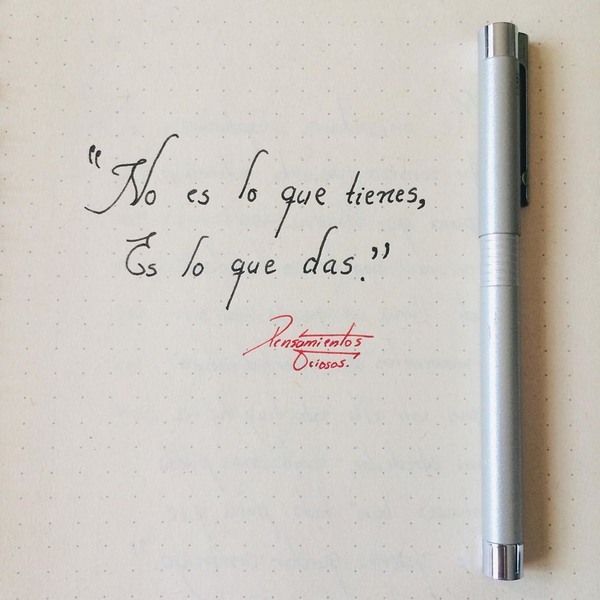 "No es lo que tienes,
Es lo que das."
Pensamientos
Ociosos.